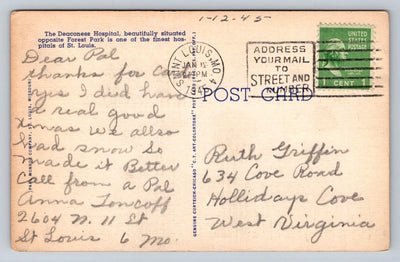 1-12-45
The Deaconess Hospital, beautifully situated
opposite Forest Park is one of the finest hos-
pitals of St. Louis.
Dear Pal
thanks for Card
yes I did have
a real good
Xmas we allso
had snow so
made it Better
Call from a Pal
Anna Toncoff
2604 N. 11 St
St Louis 6 Mo.
ST. LOUIS, MO. 4
JAN
PM
1945
ADDRESS
YOUR MAIL
TO
STREET AND
NUMBER
UNITED
STATES
POSTAGE
1 CENT 1
POST CARD
GENUINE CURTEICH-CHICAGO "C. T. ART-COLORTONE" POST CARD
Ruth Griffin
634 Cove Road
Hollidays Cove
West Virginia